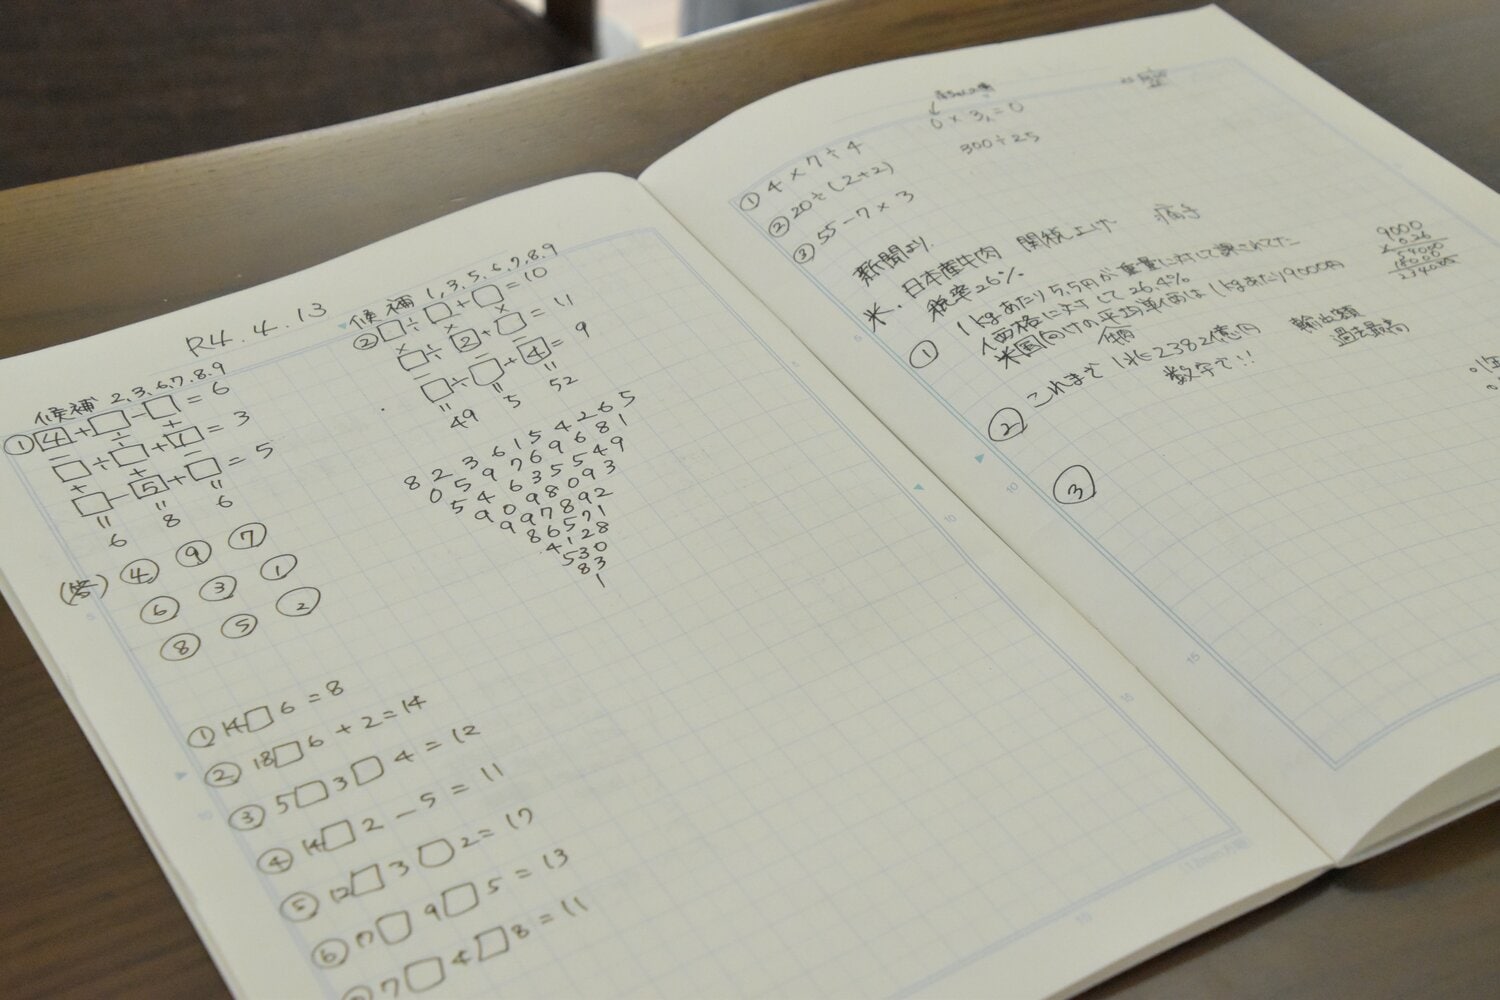 R4.4.13
候補 2,3,6,7,8,9
① 4+□-□=6
- ÷ +
□÷□+1=3
+ + -
□-5+□=5
〃 〃 〃
6 8 6
(答) ④ ⑨ ⑦
⑥ ③ ①
⑧ ⑤ ②
候補 1,3,5,6,7,8,9
② □÷□+□=10
× × ×
□÷2+□=11
- - -
□÷□+4=9
〃 〃 〃
49 5 52
8 2 3 6 1 5 4 2 6 5
0 5 9 7 6 9 6 8 1
5 4 6 3 5 5 4 9
9 0 9 8 0 9 3
9 9 7 8 9 2
8 6 5 7 1
4 1 2 8
5 3 0
8 3
1
① 14□6=8
② 18□6+2=14
③ 5□3□4=12
④ 14□2-5=11
⑤ 12□3□2=17
⑥ 17□9□5=13
7□4□8=11
0×3=0
300÷25
① 4×7÷4
② 20÷(2+2)
③ 55-7×3
新聞より
米、日本産牛肉 関税上げ 痛手
税率26%
1kgあたり5.5円が重量に対して課されてた
価格に対して26.4%
米国向けの平均単価は1kgあたり9000円
9000
×0.26
54000
18000
234000
①
これまで 1兆2382億円 輸出額
過去最高
数字で!!
②
③